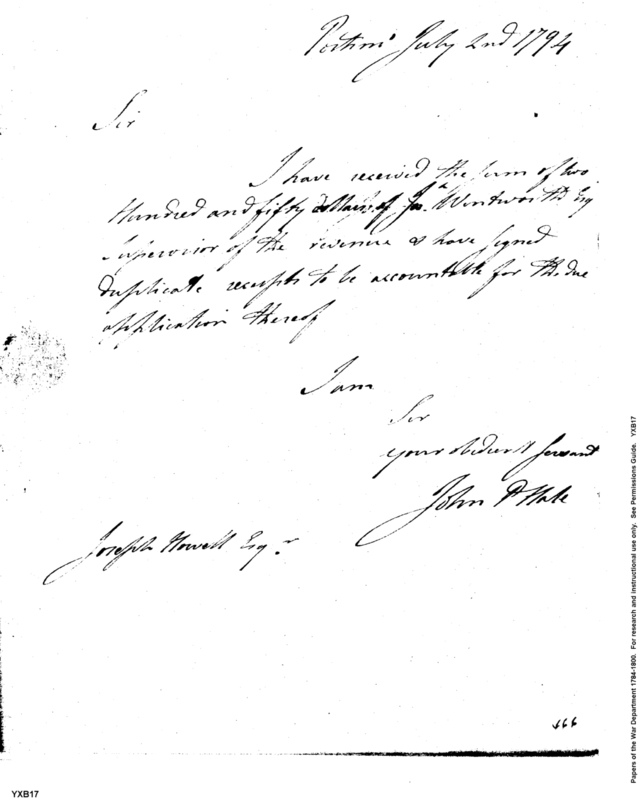 Portsmo July 2nd 1794
Sir
I have received the sum of two
Hundred and fifty dollars of Jo.a Wentworth Esq
Supervisor of the revenue & have signed
duplicate receipts to be accountable for the due
application thereof
I am
Sir
your obedient Servant
John P Hale
Joseph Howell Esq.r
166
YXB17
Papers of the War Department 1784-1800. For research and instructional use only. See Permissions Guide. YXB17